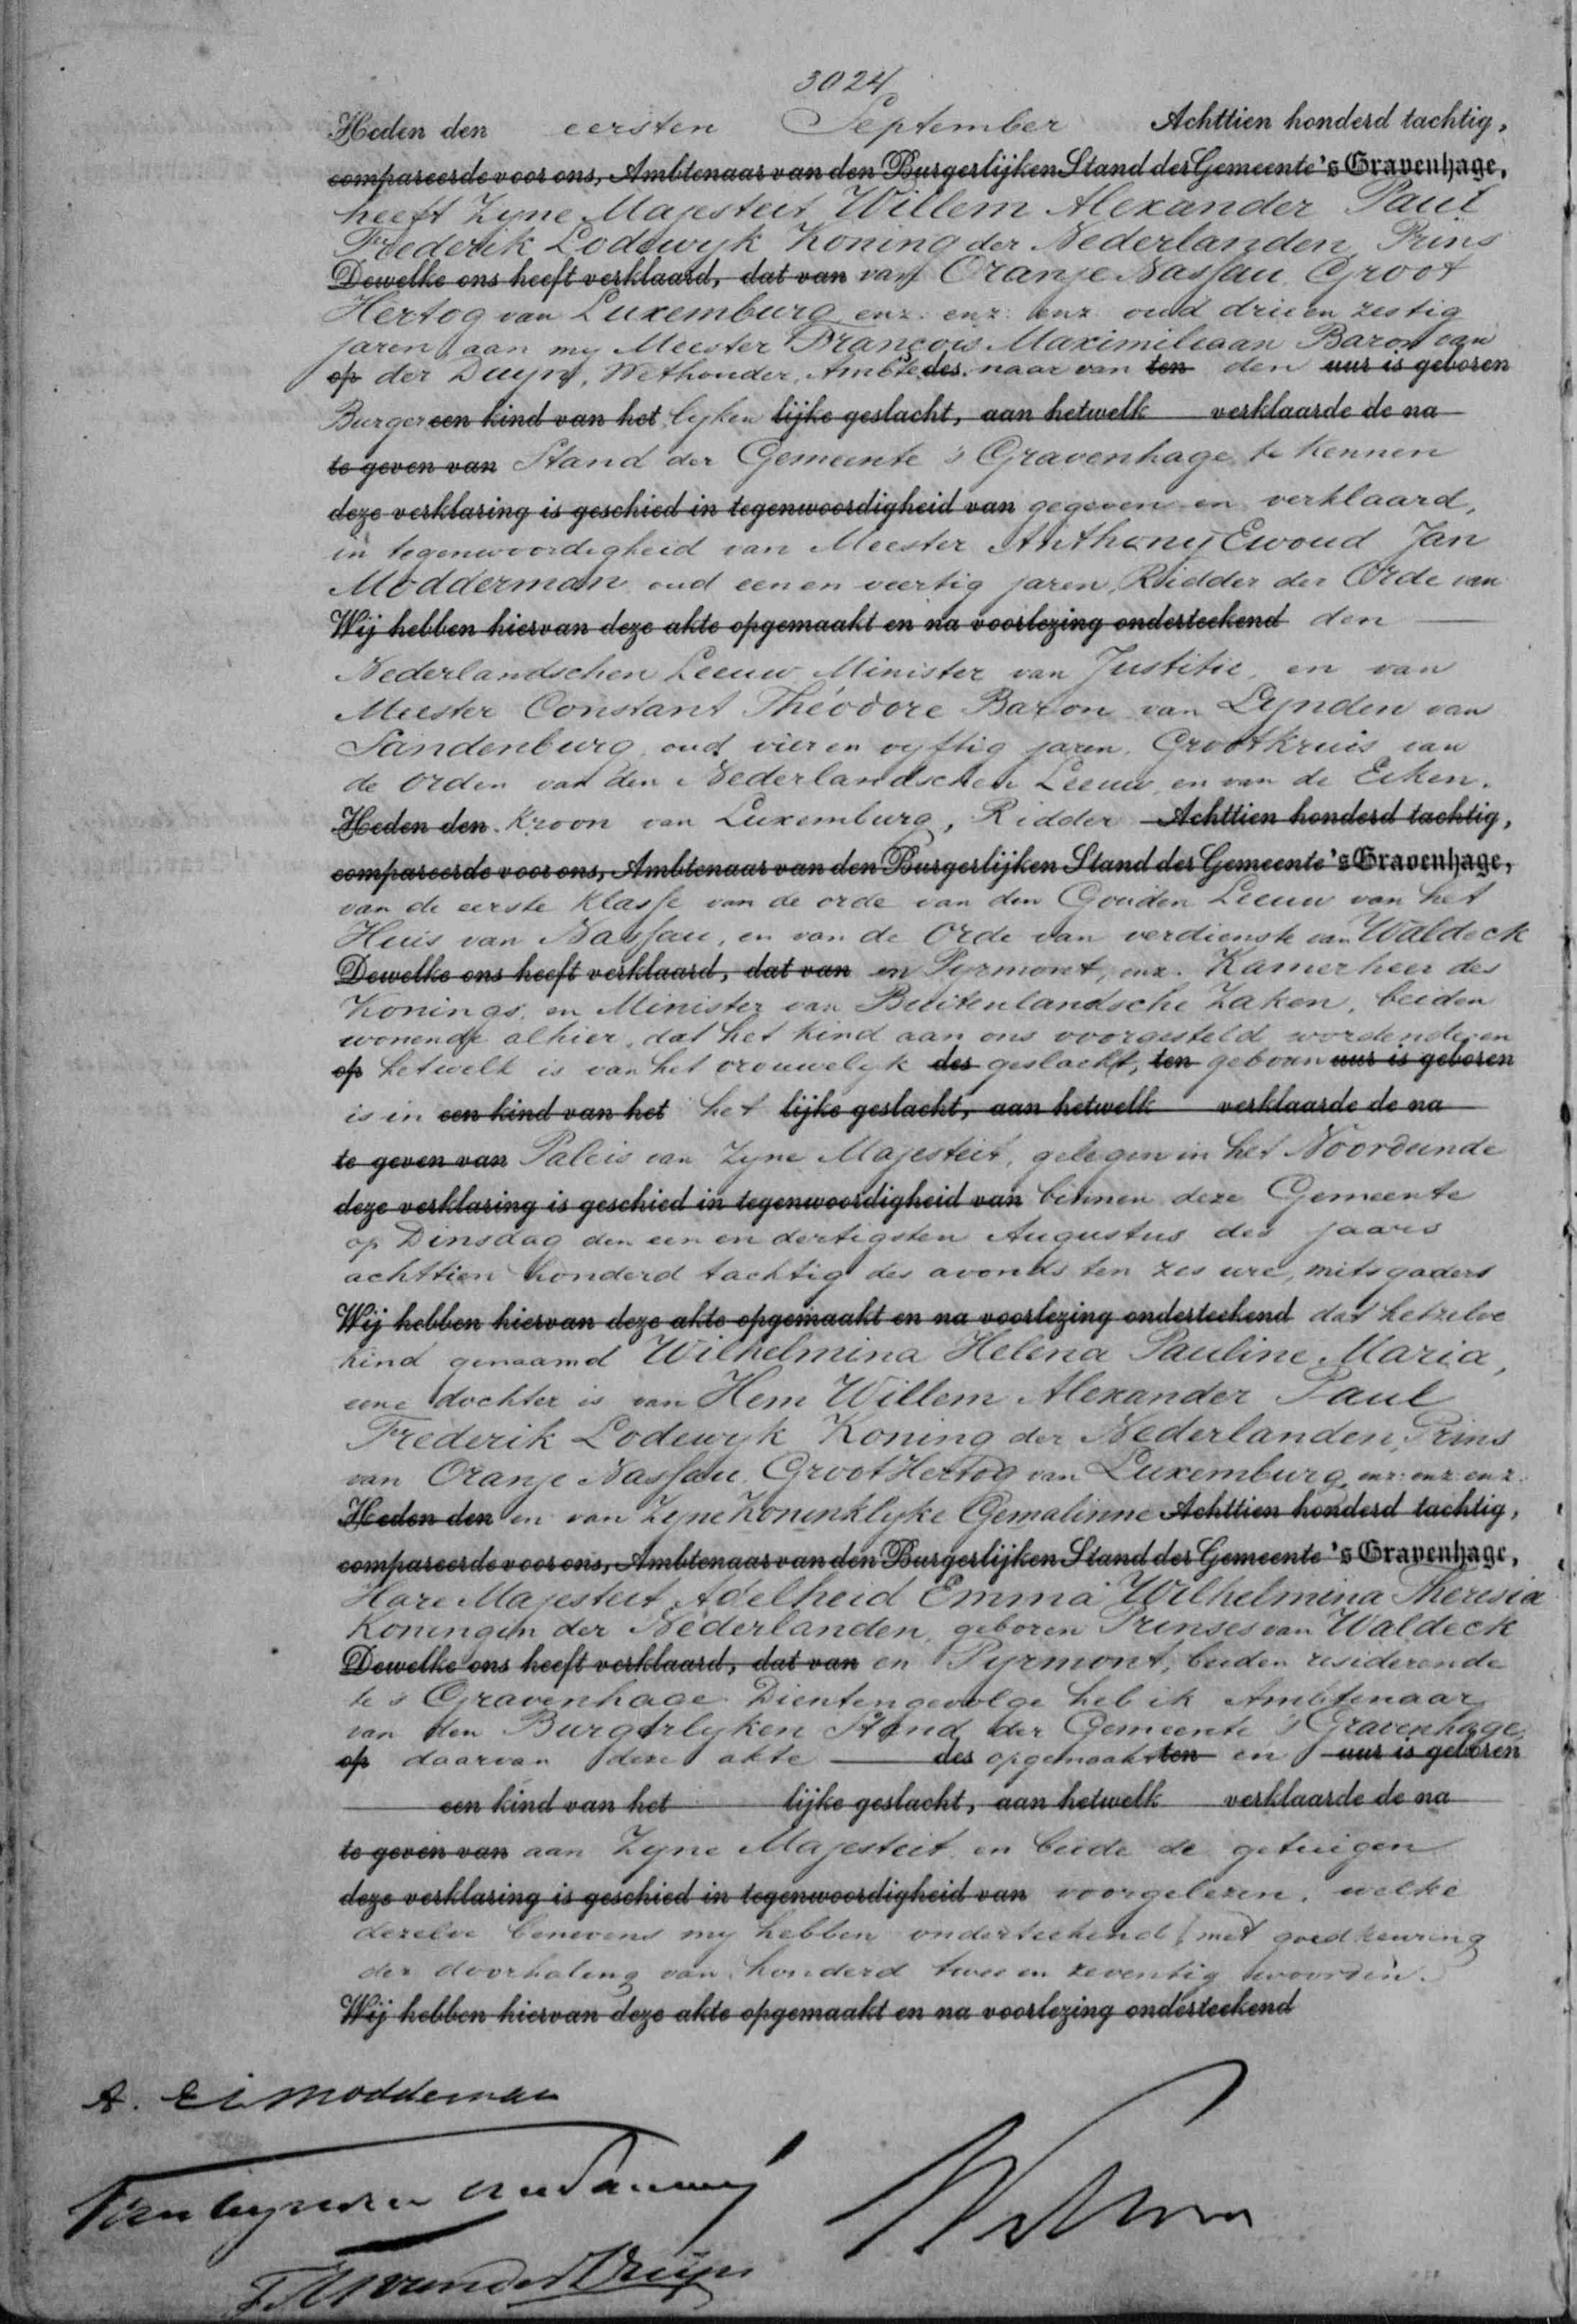 3024
Heden den eersten September Achttien honderd tachtig,
compareerde voor ons, Ambtenaar van den Burgerlijken Stand der Gemeente 's Gravenhage,
heeft Zyne Majesteit Willem Alexander Paul
Frederik Lodewyk Koning der Nederlanden, Prins
Dewelke ons heeft verklaard, dat van van Oranje Nassau, Groot
Hertog van Luxemburg, enz: enz: enz: oud drie en zestig
jaren, aan my Meester François Maximiliaan Baron van
op der Duyn, Wethouder, Ambte des naar van ten den uur is geboren
Burger een kind van het lyken lijke geslacht, aan hetwelk verklaarde de na
te geven van Stand der Gemeente 's Gravenhage, te kennen
deze verklaring is geschied in tegenwoordigheid van gegeven en verklaard,
in tegenwoordigheid van Meester Anthony Ewoud Jan
Modderman, oud een en veertig jaren, Ridder der Orde van
Wij hebben hiervan deze akte opgemaakt en na voorlezing onderteekend den
Nederlandschen Leeuw, Minister van Justitie, en van
Meester Constant Théodore Baron van Lynden van
Sandenburg, oud vier en vyftig jaren, Grootkruis van
de orden van den Nederlandschen Leeuw, en van de Eiken.
Heden den Kroon van Luxemburg, Ridder Achttien honderd tachtig,
compareerde voor ons, Ambtenaar van den Burgerlijken Stand der Gemeente 's Gravenhage,
van de eerste Klasse van de orde van den Gouden Leeuw van het
Huis van Nassau, en van de Orde van verdienste van Waldeck
Dewelke ons heeft verklaard, dat van en Pyrmont, enz. Kamerheer des
Konings, en Minister van Buitenlandsche Zaken, beiden
wonende alhier, dat het kind aan ons voorgesteld wordende, en
op hetwelk is van het vrouwelyk des geslacht, ten geboren uur is geboren
is in een kind van het het lijke geslacht, aan hetwelk verklaarde de na
te geven van Paleis van Zyne Majesteit, gelegen in het Noordeinde
deze verklaring is geschied in tegenwoordigheid van binnen deze Gemeente
op Dinsdag den een en dertigsten Augustus des jaars
achttien honderd tachtig des avonds ten zes ure, mitsgaders
Wij hebben hiervan deze akte opgemaakt en na voorlezing onderteekend dat hetzelve
kind genaamd Wilhelmina Helena Pauline Maria,
eene dochter is van Hem Willem Alexander Paul
Frederik Lodewyk Koning der Nederlanden, Prins
van Oranje Nassau, Groot Hertog van Luxemburg, enz: enz: enz:
Heden den en van Zyne Koninklyke Gemalinne Achttien honderd tachtig,
compareerde voor ons, Ambtenaar van den Burgerlijken Stand der Gemeente 's Gravenhage,
Hare Majesteit Adelheid Emma Wilhelmina Theresia
Koningin der Nederlanden, geboren Prinses van Waldeck
Dewelke ons heeft verklaard, dat van en Pyrmont, beiden residerende
te 's Gravenhage. Dientengevolge heb ik Ambtenaar
van den Burgerlyken Stand der Gemeente 's Gravenhage,
op daarvan deze akte des opgemaakt ten en uur is geboren
een kind van het lijke geslacht, aan hetwelk verklaarde de na
te geven van aan Zyne Majesteit, en beide de getuigen
deze verklaring is geschied in tegenwoordigheid van voorgelezen, welke
dezelve benevens my hebben onderteekend, met goedkeuring
der doorhaling van honderd twee en zeventig woorden.
Wij hebben hiervan deze akte opgemaakt en na voorlezing onderteekend
A. E. J. Modderman
Van Lynden van Sandenburg
Willem
F. M. van der Duyn